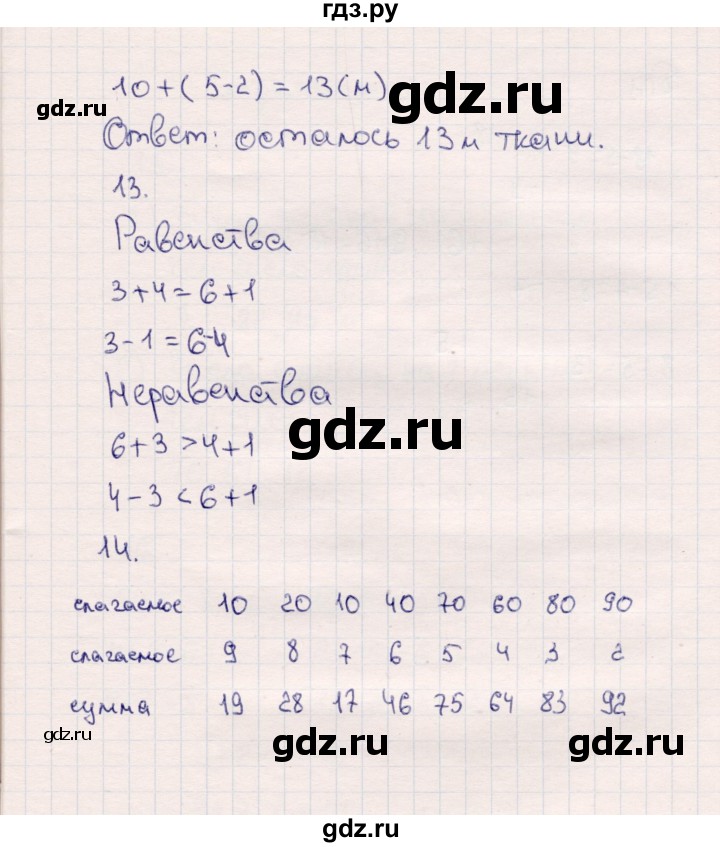 гдз.ру
10+(5-2)=13(м)
gdz.ru
gdz.ru
Ответ: осталось 13м ткани.
13.
Равенства
3+4=6+1
3-1=6-4
Неравенства
gdz.ru
6+3>4+1
4-3<6+1
14.
слагаемое 10 20 10 40 70 60 80 90
слагаемое 9 8 7 6 5 4 3 2
сумма 19 28 17 46 75 64 83 92
gdz.ru
gdz.ru
gdz.ru
gdz.ru